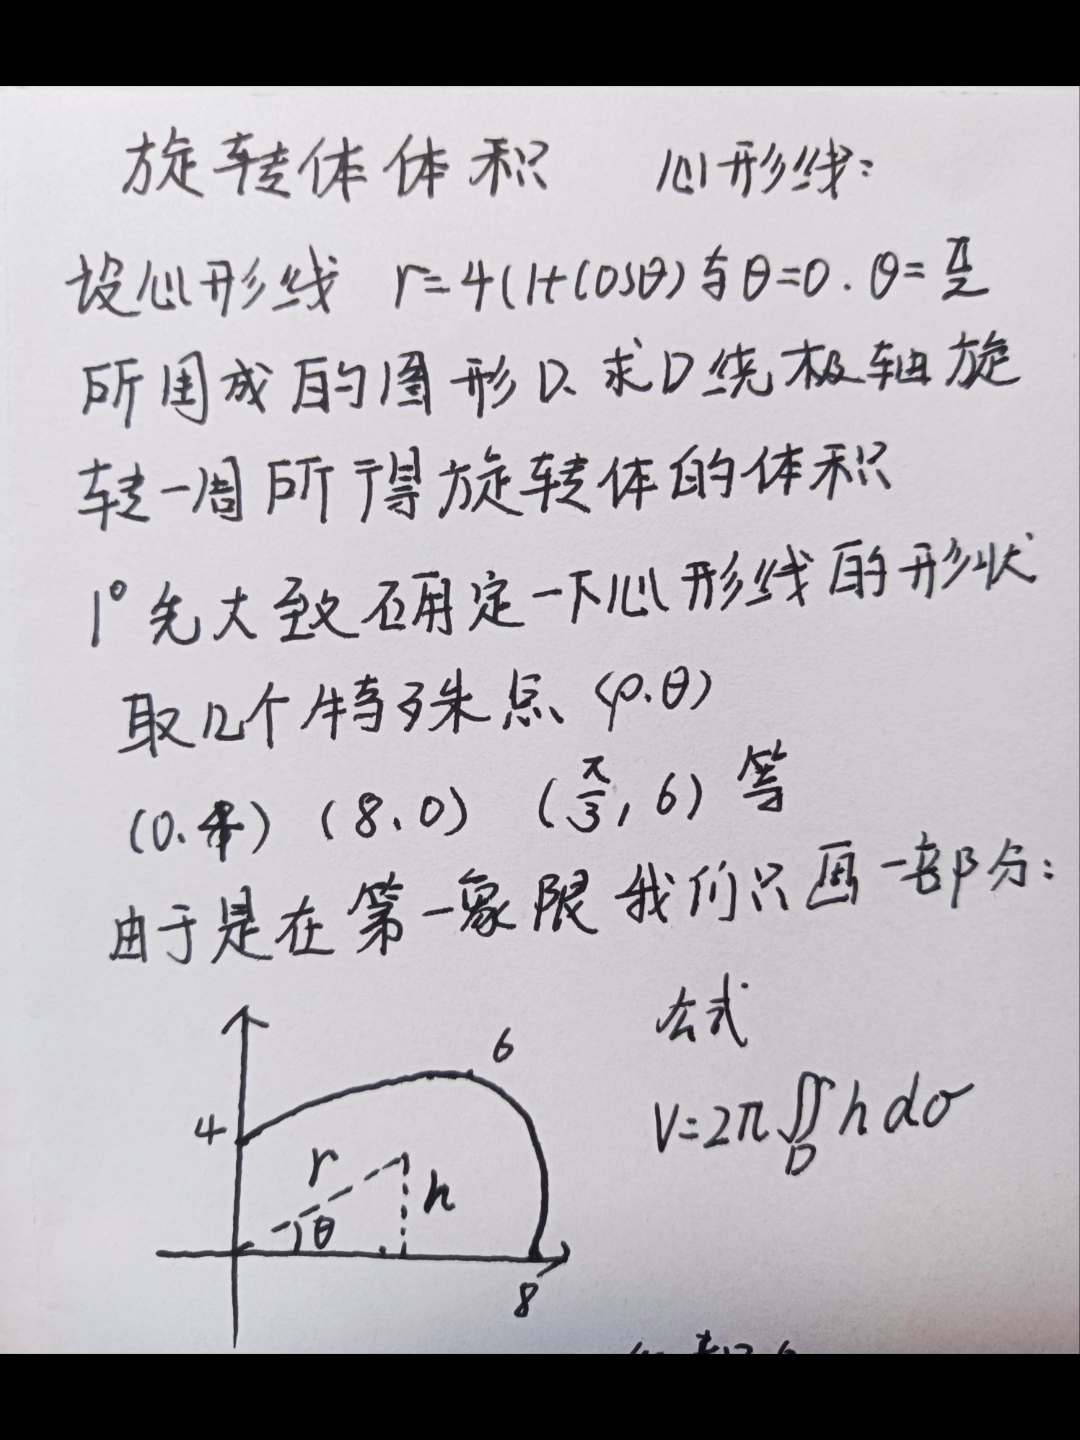 旋转体体积 心形线：
设心形线 r=4(1+cosθ)与θ=0.θ=π/2
所围成的图形D、求D绕极轴旋
转一周所得旋转体的体积
1°先大致确定一下心形线的形状
取几个特殊点(ρ.θ)
(0.4) (8.0) (π/3,6)等
由于是在第一象限我们只画一部分：
公式
V=2π∬h dσ
D
6
4
r
h
θ
8